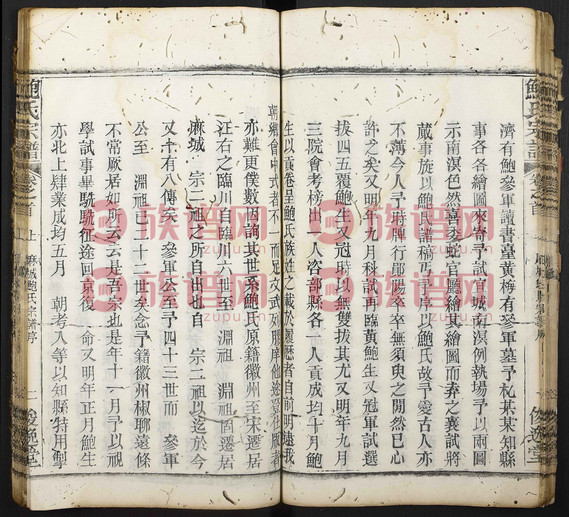 濟有鮑參軍讀書臺黃梅有參軍墓予札某某知縣
事各各繪圖來寄予試官城南溟例執場予以兩圖
示南溟色然喜委蛇官廳繪其繪圖而弆之襄試將
蕆事旋以鮑氏譜稿丐予序以鮑氏故予愛古人亦
不薄今人予時牌行鄖陽卒卒無須臾之閒然已心
許之矣又明年九月科試再臨黃鮑生又冠軍試選
拔四五覆鮑生又冠時以無雙拔其尤又明年九月
三院會考榜出一人咨部縣各一人貢成均十月鮑
生以貢卷呈鮑氏族姓之載於履歷者自前明逮我
朝鄉會中式者不一而足文武列
亦難更僕數因詢其世系鮑原籍徽州至宋遷居
江右之臨川自臨川六世至 淵祖 淵祖囘遷居
麻城 宗二祖之所自出也自 宗二祖以迄於今
又十有八傳矣 參軍公至予四十三世而 參軍
公至 淵祖已二十二世矣念予籍徽州椒聊遠條
不常厥居如所云云是吾宗也是年十一月予以視
學試事畢駪駪征途回京復 命又明年正月鮑生
亦北上肄業成均五月 朝考入等以知縣特用掣
鮑氏宗譜
卷之首
上
麻城鮑氏宗譜序
一
俊逸堂
鮑氏宗譜
卷之首
俊逸堂
族谱网
zupu.cn